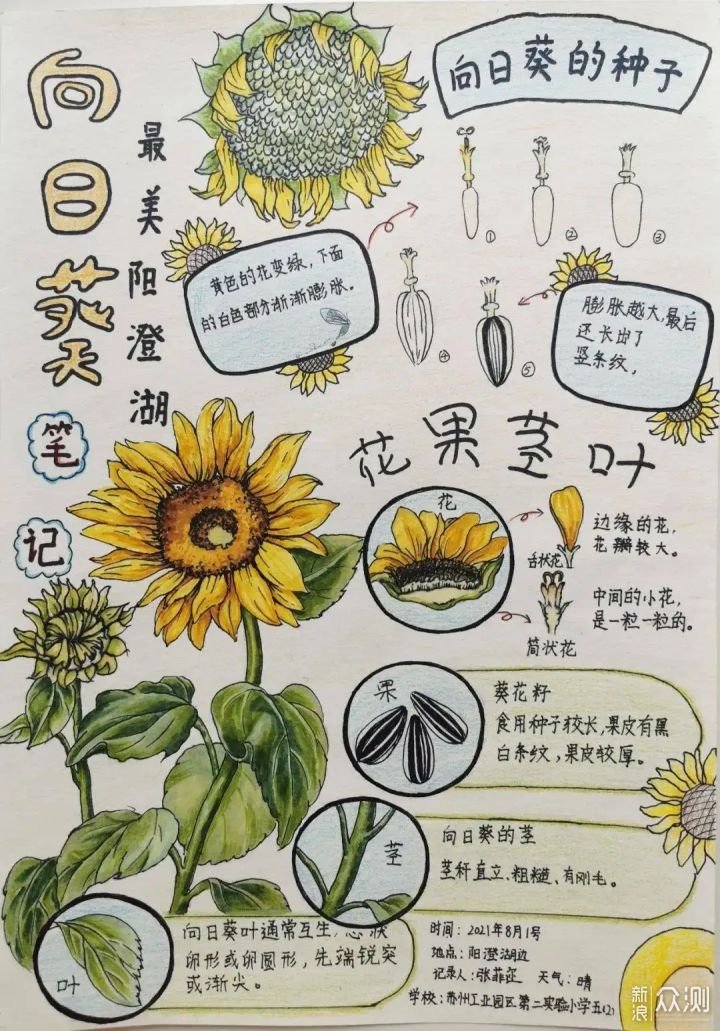 向日葵
笔记
最美阳澄湖
向日葵的种子
①
②
③
④
⑤
黄色的花变绿，下面
的白色部分渐渐膨胀。
膨胀越大，最后
还长出了
竖条纹，
花果茎叶
花
舌状花
边缘的花，
花瓣较大。
筒状花
中间的小花，
是一粒一粒的。
果
葵花籽
食用种子较长，果皮有黑
白条纹，果皮较厚。
茎
向日葵的茎
茎秆直立、粗糙、有刚毛。
叶
向日葵叶通常互生，心状
卵形或卵圆形，先端锐突
或渐尖。
时间：2021年8月1号
地点：阳澄湖边
记录人：张菲 天气：晴
学校：苏州工业园区第二实验小学五(2)
新浪众测